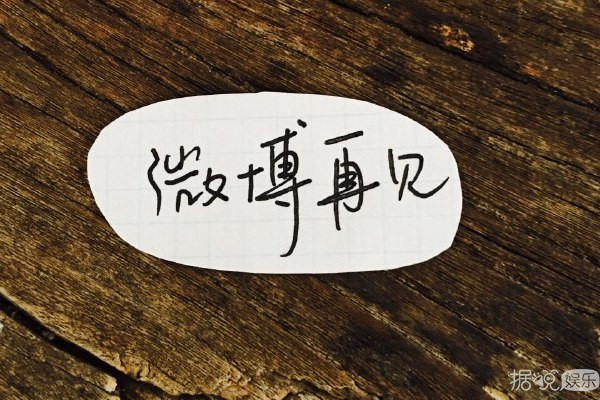 微博再见
据说娱乐